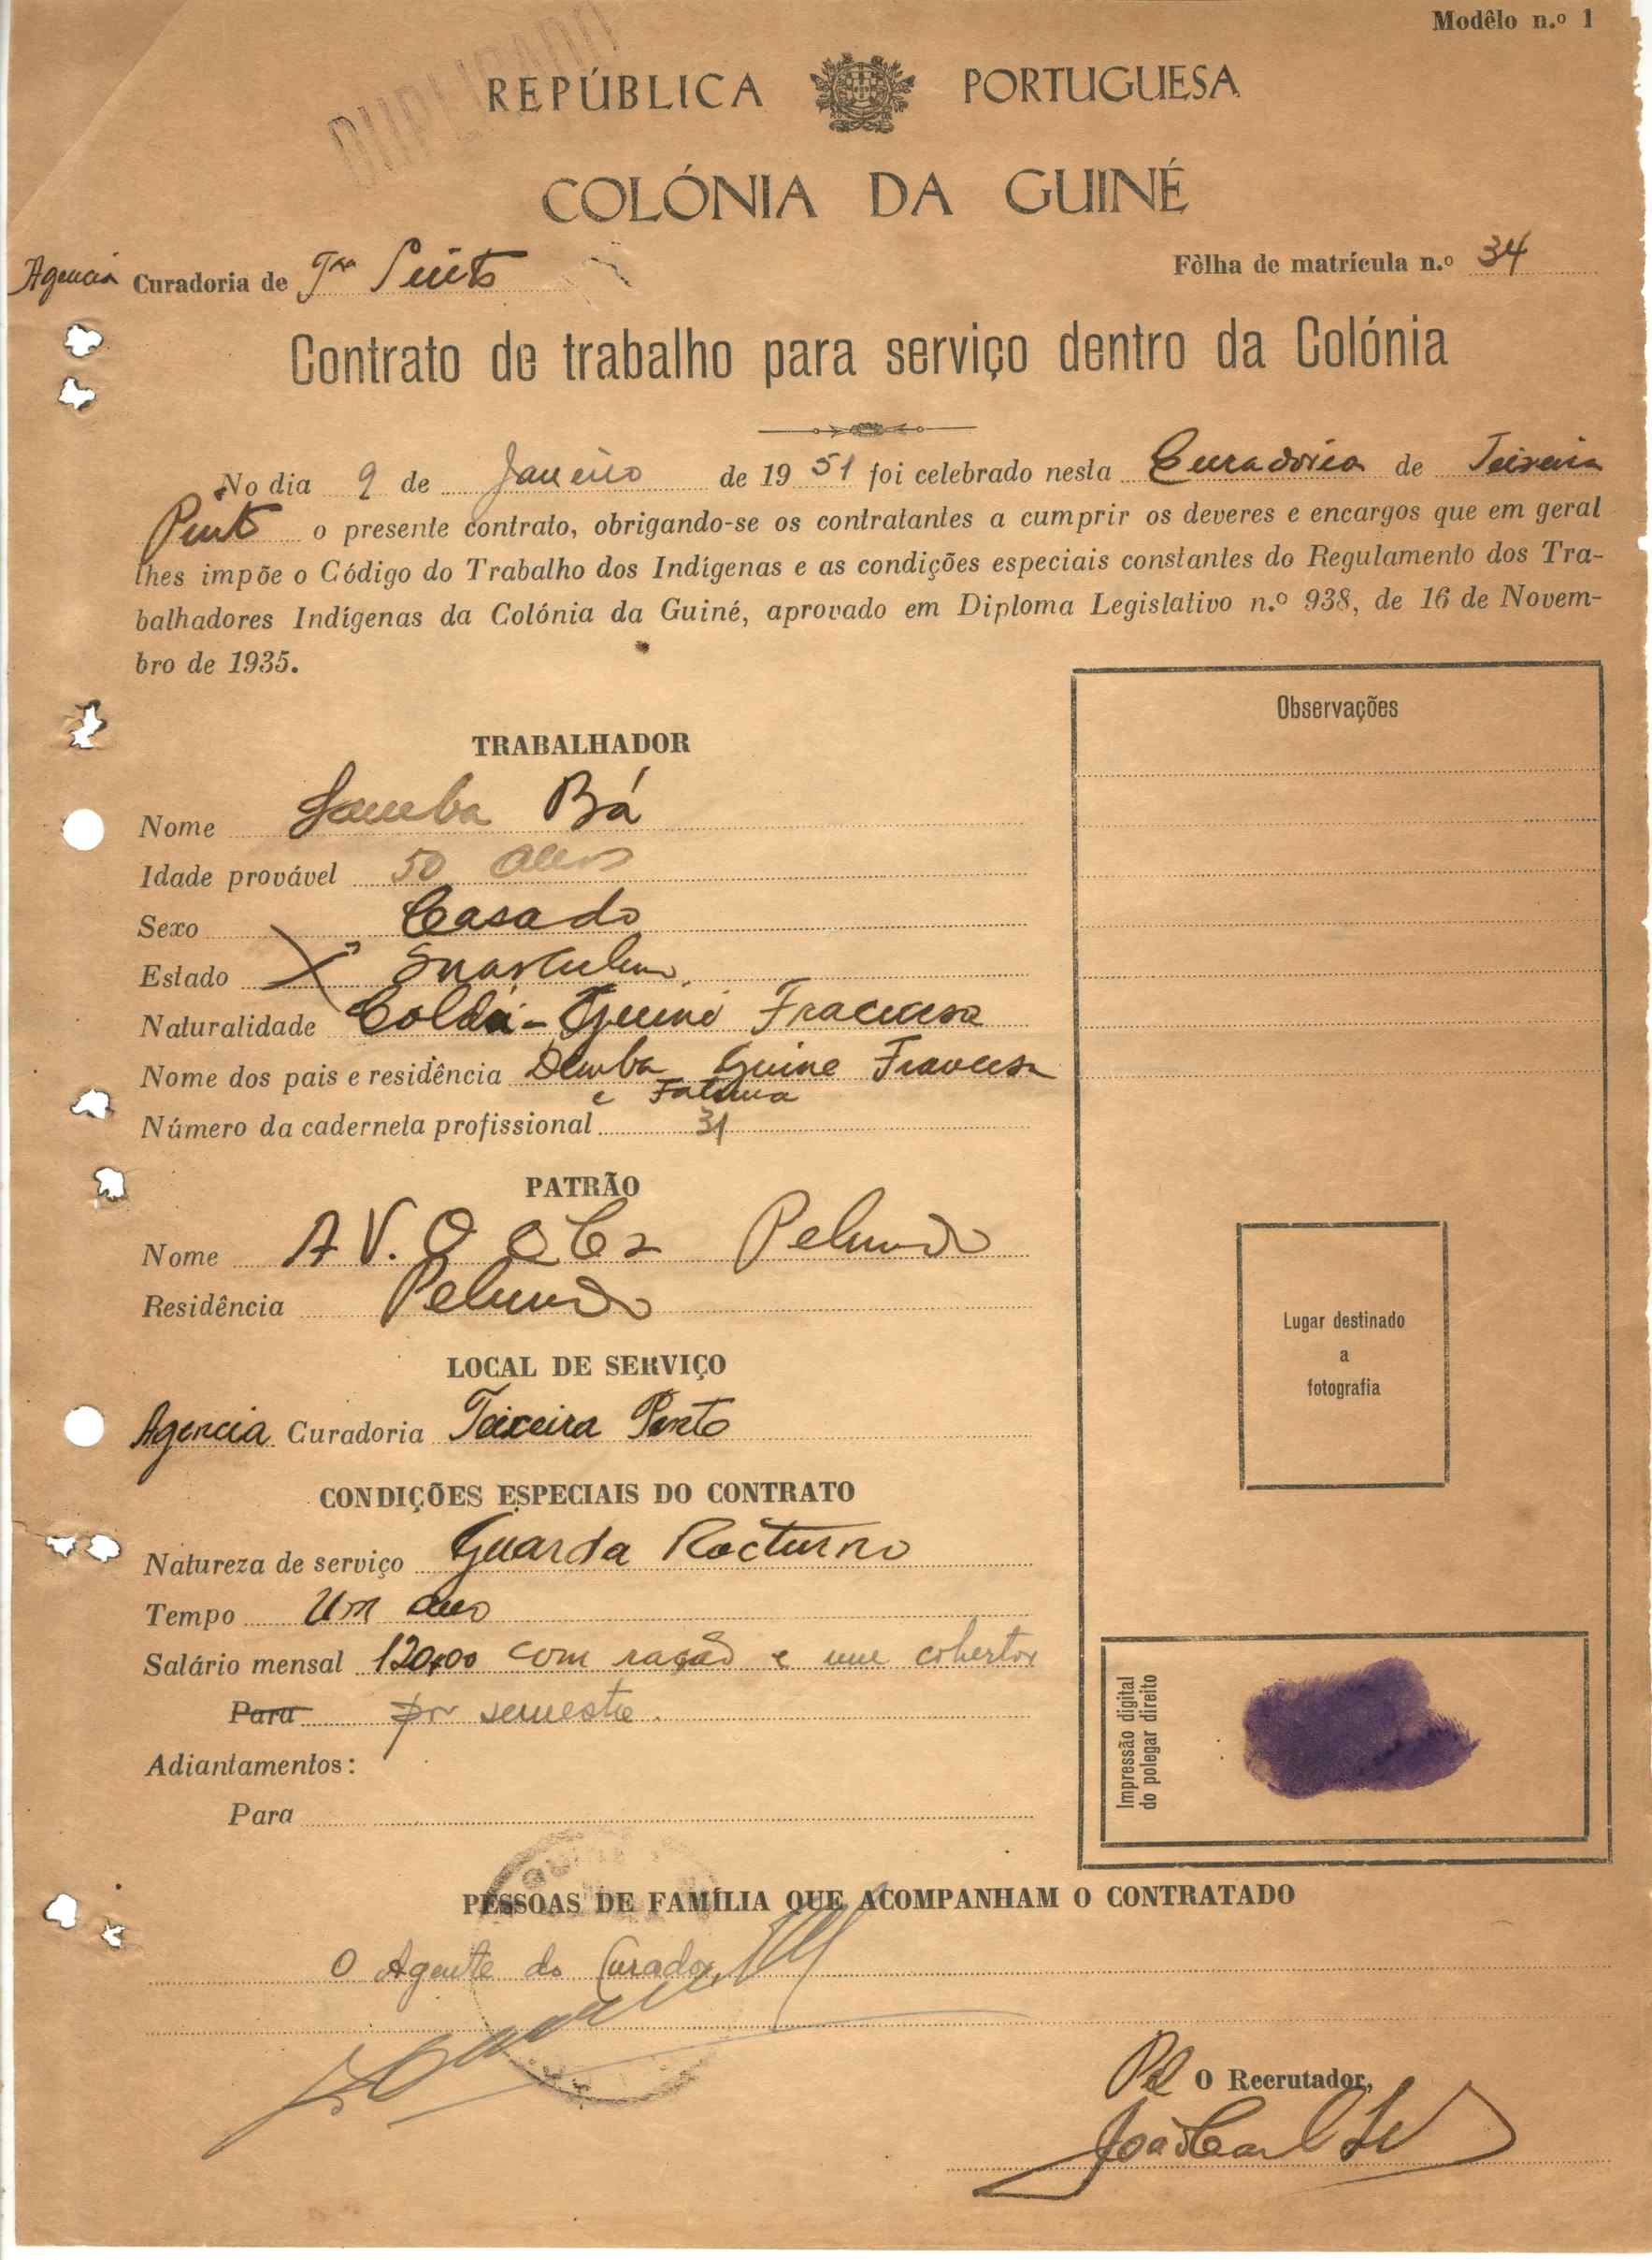 Modêlo n.º 1
DUPLICADO
REPÚBLICA PORTUGUESA
COLÓNIA DA GUINÉ
Agencia Curadoria de Tra Pinto
Fôlha de matrícula n.º 34
Contrato de trabalho para serviço dentro da Colónia
No dia 9 de Janeiro de 1951 foi celebrado nesta Curadoria de Teixeira
Pinto o presente contrato, obrigando-se os contratantes a cumprir os deveres e encargos que em geral
lhes impõe o Código do Trabalho dos Indígenas e as condições especiais constantes do Regulamento dos Tra-
balhadores Indígenas da Colónia da Guiné, aprovado em Diploma Legislativo n.º 938, de 16 de Novem-
bro de 1935.
Observações
TRABALHADOR
Nome Samba Bá
Idade provável 50 anos
Sexo Casado
Estado Masculino
Naturalidade Coldá - Guiné Francesa
Nome dos pais e residência Demba Guine Francesa
e Fatma
Número da caderneta profissional 31
PATRÃO
Nome A V. O Pelundo
Residência Pelundo
Lugar destinado
a
fotografia
LOCAL DE SERVIÇO
Agencia Curadoria Teixeira Pinto
CONDIÇÕES ESPECIAIS DO CONTRATO
Natureza de serviço Guarda Nocturno
Tempo Um ano
Salário mensal 120,00 com ração e um cobertor
Para por semestre.
Adiantamentos:
Para
Impressão digital
do polegar direito
PESSOAS DE FAMÍLIA QUE ACOMPANHAM O CONTRATADO
O Agente do Curador
O Recrutador,